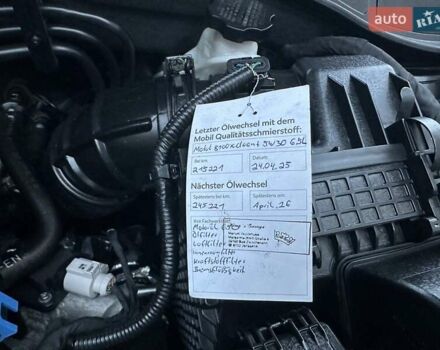 auto RIA
Letzter Ölwechsel mit dem
Mobil Qualitätsschmierstoff:
5W30 6,5L
Bei km: Datum:
215221 24.04.25
Nächster Ölwechsel
Spätestens bei km: Spätestens am:
245221 April, 26
Ihre Fachwerkstatt
Ölfilter
Luftfilter
Innenraumfilter
Kraftstofffilter
Bremsflüssigkeit
EN